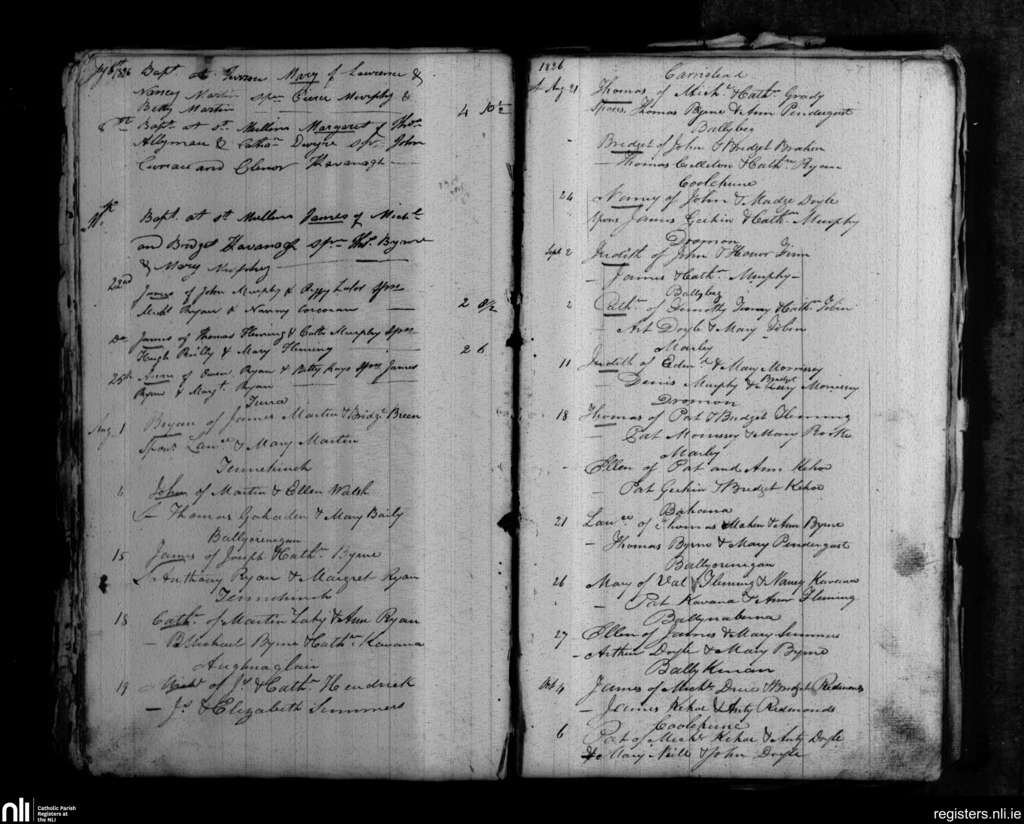 July 1826 Bapt. at Turra Mary of Lawrence &
Nancy Martin spr. Murphy &
Betty Martin 4
8th Bapt. at St. Mullins Margaret of Thos.
& Cathn. Dwyre spr. John
Curran and Elenor Kavanagh
Bapt. at St Mullins James of Michl.
an Bridgt Kavanagh sprs Thos. Byrne
& Mary Murphy
22nd James of John Murphy & Peggy Lalor spon
Michl Ryan & Nanny Corcoran 2 8/2
Do James of Thomas Fleming & Cath Murphy spon
Hugh Reilly & Mary Fleming 2 6
25th Anne of Owen Ryan & Betty spon James
Byrne & Margt. Ryan
Turra
Aug 1 Bryan of James Martin & Bridgt Breen
Spons Lance & Mary Martin
Tennehinch
6 John of Martin & Ellen Walsh
Thomas & Mary Baily
Ballycrenegan
15 James of Joseph & Cathn Byrne
Anthony Ryan & Margret Ryan
Tennehinch
18 Cathn. of Martin & Ann Ryan
Michael Byrne & Cathn Kavana
Aughnaglair
19 Michl of Js & Cathn Hendrick
Js & Elizabeth Summers
1826
Aug 21 Thomas of Michl & Cathn Grady
Spons. Thomas Byrne & Ann Pendergast
Ballybeg
Bridget of John & Bridget Braken
Thomas & Cathne Ryan
Coolehune
24 Nanny of John & Madge Doyle
Spons James & Cathn. Murphy
Dromon
Sept 2 Judith of John & Honor Finn
James & Cathn. Murphy
Ballybeg
2 Cathn. of Timothy & Cathn Tobin
Art Doyle & Mary Tobin
Marley
11 Judith of Edmd & Mary Morressy
Denis Murphy & Bridget Morressy
Dromon
18 Thomas of Pat & Bridget Fleming
Pat Morressy & Mary Rorke
Marly
Ellen of Pat and Ann Kehoe
Pat & Bridget Kehoe
Bahana
21 Lance of Thomas Maher & Ann Byrne
Thomas Byrne & Mary Pendergast
Ballycrenegan
26 Mary of Val Fleming & Nancy Kavana
Pat Kavana & Ann Fleming
Ballynaberna
27 Ellen of James & Mary Summers
Arthur Doyle & Mary Byrne
Ballykenan
Oct 4 James of Michl & Bridget Redmond
James Kehoe & Anty Redmonds
Coolehune
6 Pat of Michl Kehoe & Anty Doyle
Mary Neill & John Doyle
nli Catholic Parish
Registers at
the NLI
registers.nli.ie